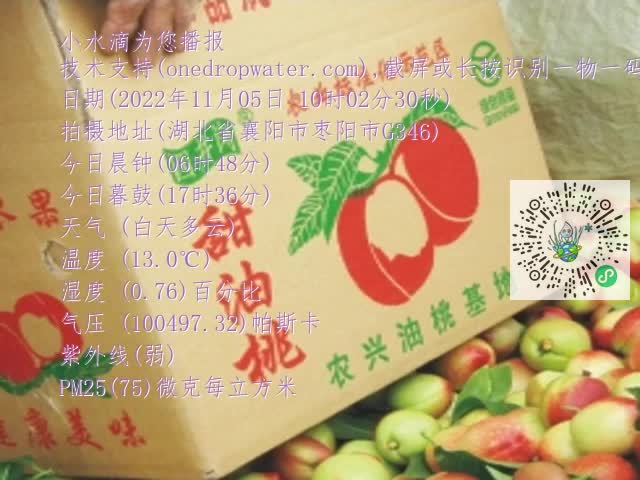 小水滴为您播报
技术支持(onedropwater.com),截屏或长按识别一物一码
日期(2022年11月05日 10时02分30秒)
拍摄地址(湖北省襄阳市枣阳市G346)
今日晨钟(06时48分)
今日暮鼓(17时36分)
天气 (白天多云)
温度 (13.0℃)
湿度 (0.76)百分比
气压 (100497.32)帕斯卡
紫外线(弱)
PM25(75)微克每立方米
甜油桃
农兴油桃基地
水果
健康美味